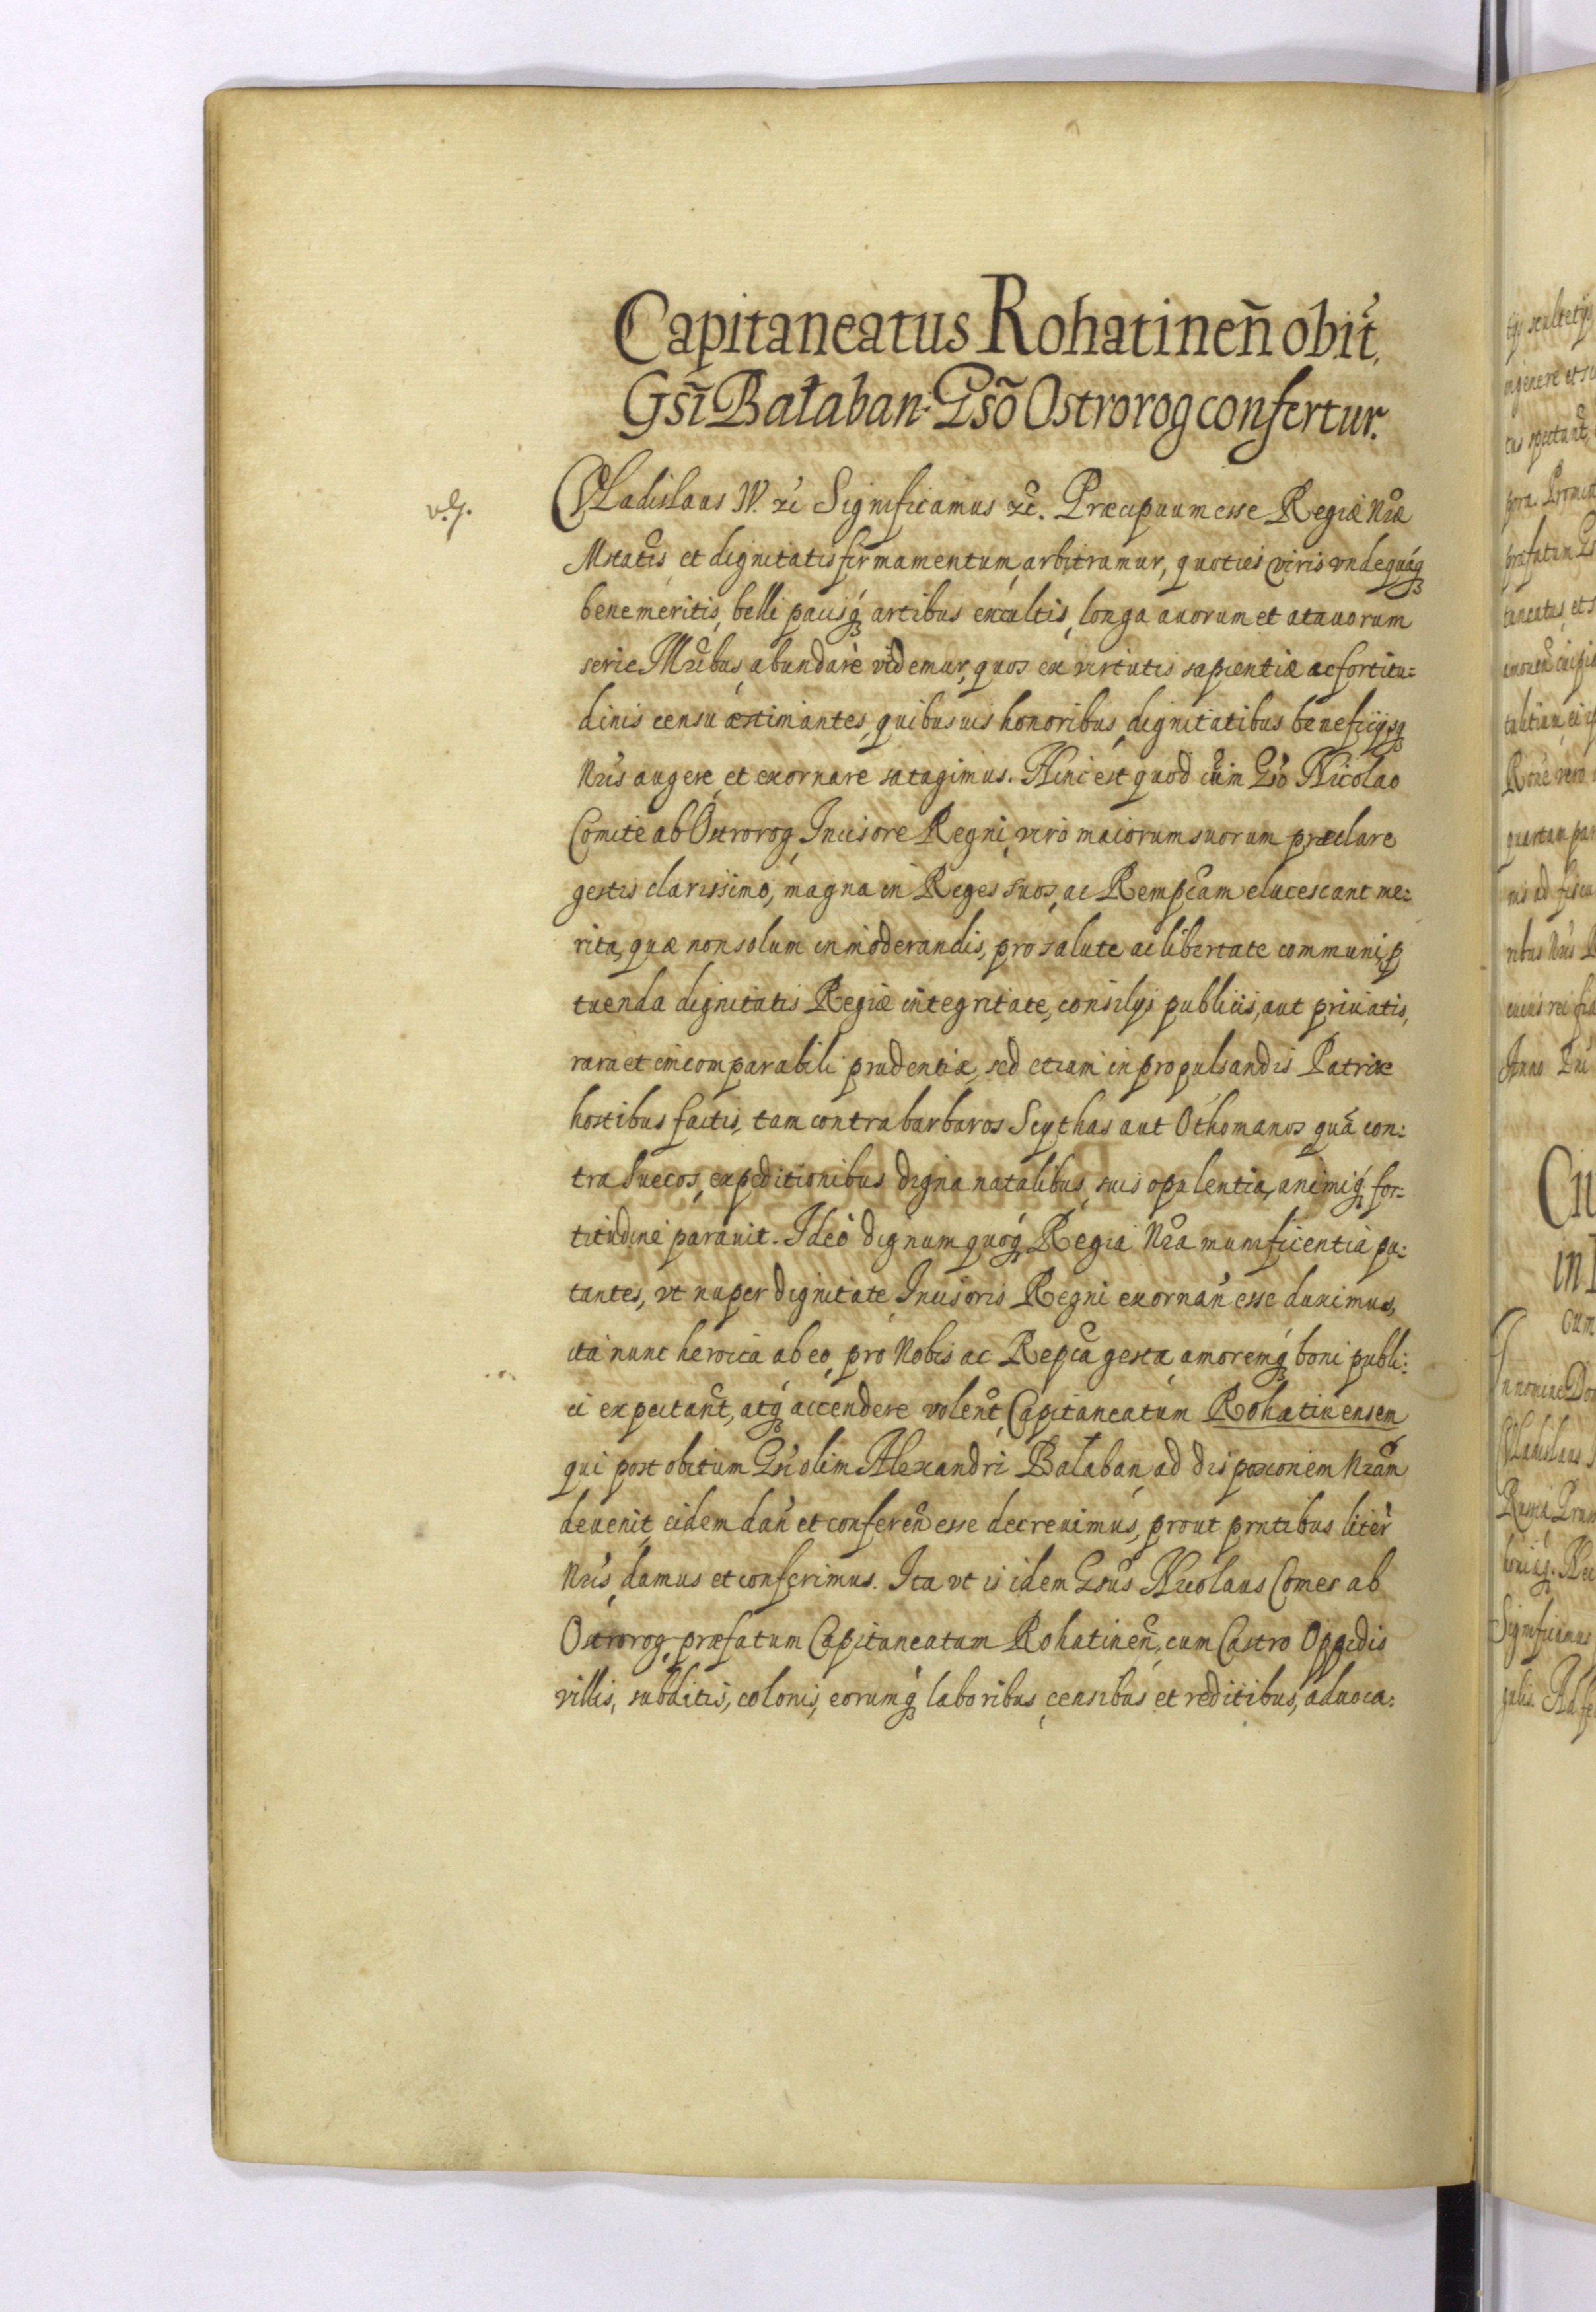 Capitaneatus Rohatineñ obit̃,
Gsi Bałaban Gso Ostrorog confertur.
v.g.
Vladislaus IV. etc̃ Significamus etc̃. Præcipuum esse Regiæ Nræ
Mtatis et dignitatis firmamentum, arbitramur, quoties viris undequáq3
benemeritis, belli pacisq́3 artibus excultis, longa auorum et atauorum
serie Nr̃ibus abundare videmur, quos ex virtutis sapientiæ ac fortitu:
dinis censu æstimantes, quibusuis honoribus, dignitatibus beneficijsq3
Nris augere et exornare satagimus. Hinc est quod cum Gso Nicolao
Comite ab Ostrorog, Incisore Regni, viro maiorum suorum præclare
gestis clarissimo, magna in Reges suos, ac Rempcam elucescant me:
rita, quæ non solum in moderandis, pro salute ac libertate communi, p
tuenda dignitatis Regiæ integritate, consilijs publicis, aut priuatis,
rara et incomparabili prudentia, sed etiam in propulsandis Patriæ
hostibus factis, tam contra barbaros Scythas aut Othomanos quã con:
tra Suecos, expeditionibus digna natalibus, suis opulentia, animiq́3 for:
titudine parauit. Ideo dignum quoq́3 Regia Nra munificentia pu:
tantes, vt nuper dignitate Incisoris Regni exornan̄ esse duximus,
ita nunc heroica ab eo, pro Nobis ac Repca gesta, amoremq́3 boni publi:
ci expectant̃, atq́3 accendere volent̃, Capitaneatum Rohatinensem
qui post obitum Gsi olim Alexandri Bałaban, ad disposionem Nram
deuenit, eidem dan̄ et conferen̄ esse decreuimus, prout pntibus liter̃
Nris, damus et conferimus. Ita vt is idem Gsus Nicolaus Comes ab
Ostrorog præfatum Capitaneatum Rohatinen̄, cum Castro Oppidis
villis, subditis, colonis, eorumq́3 laboribus, censibus et reditibus, aduoca: